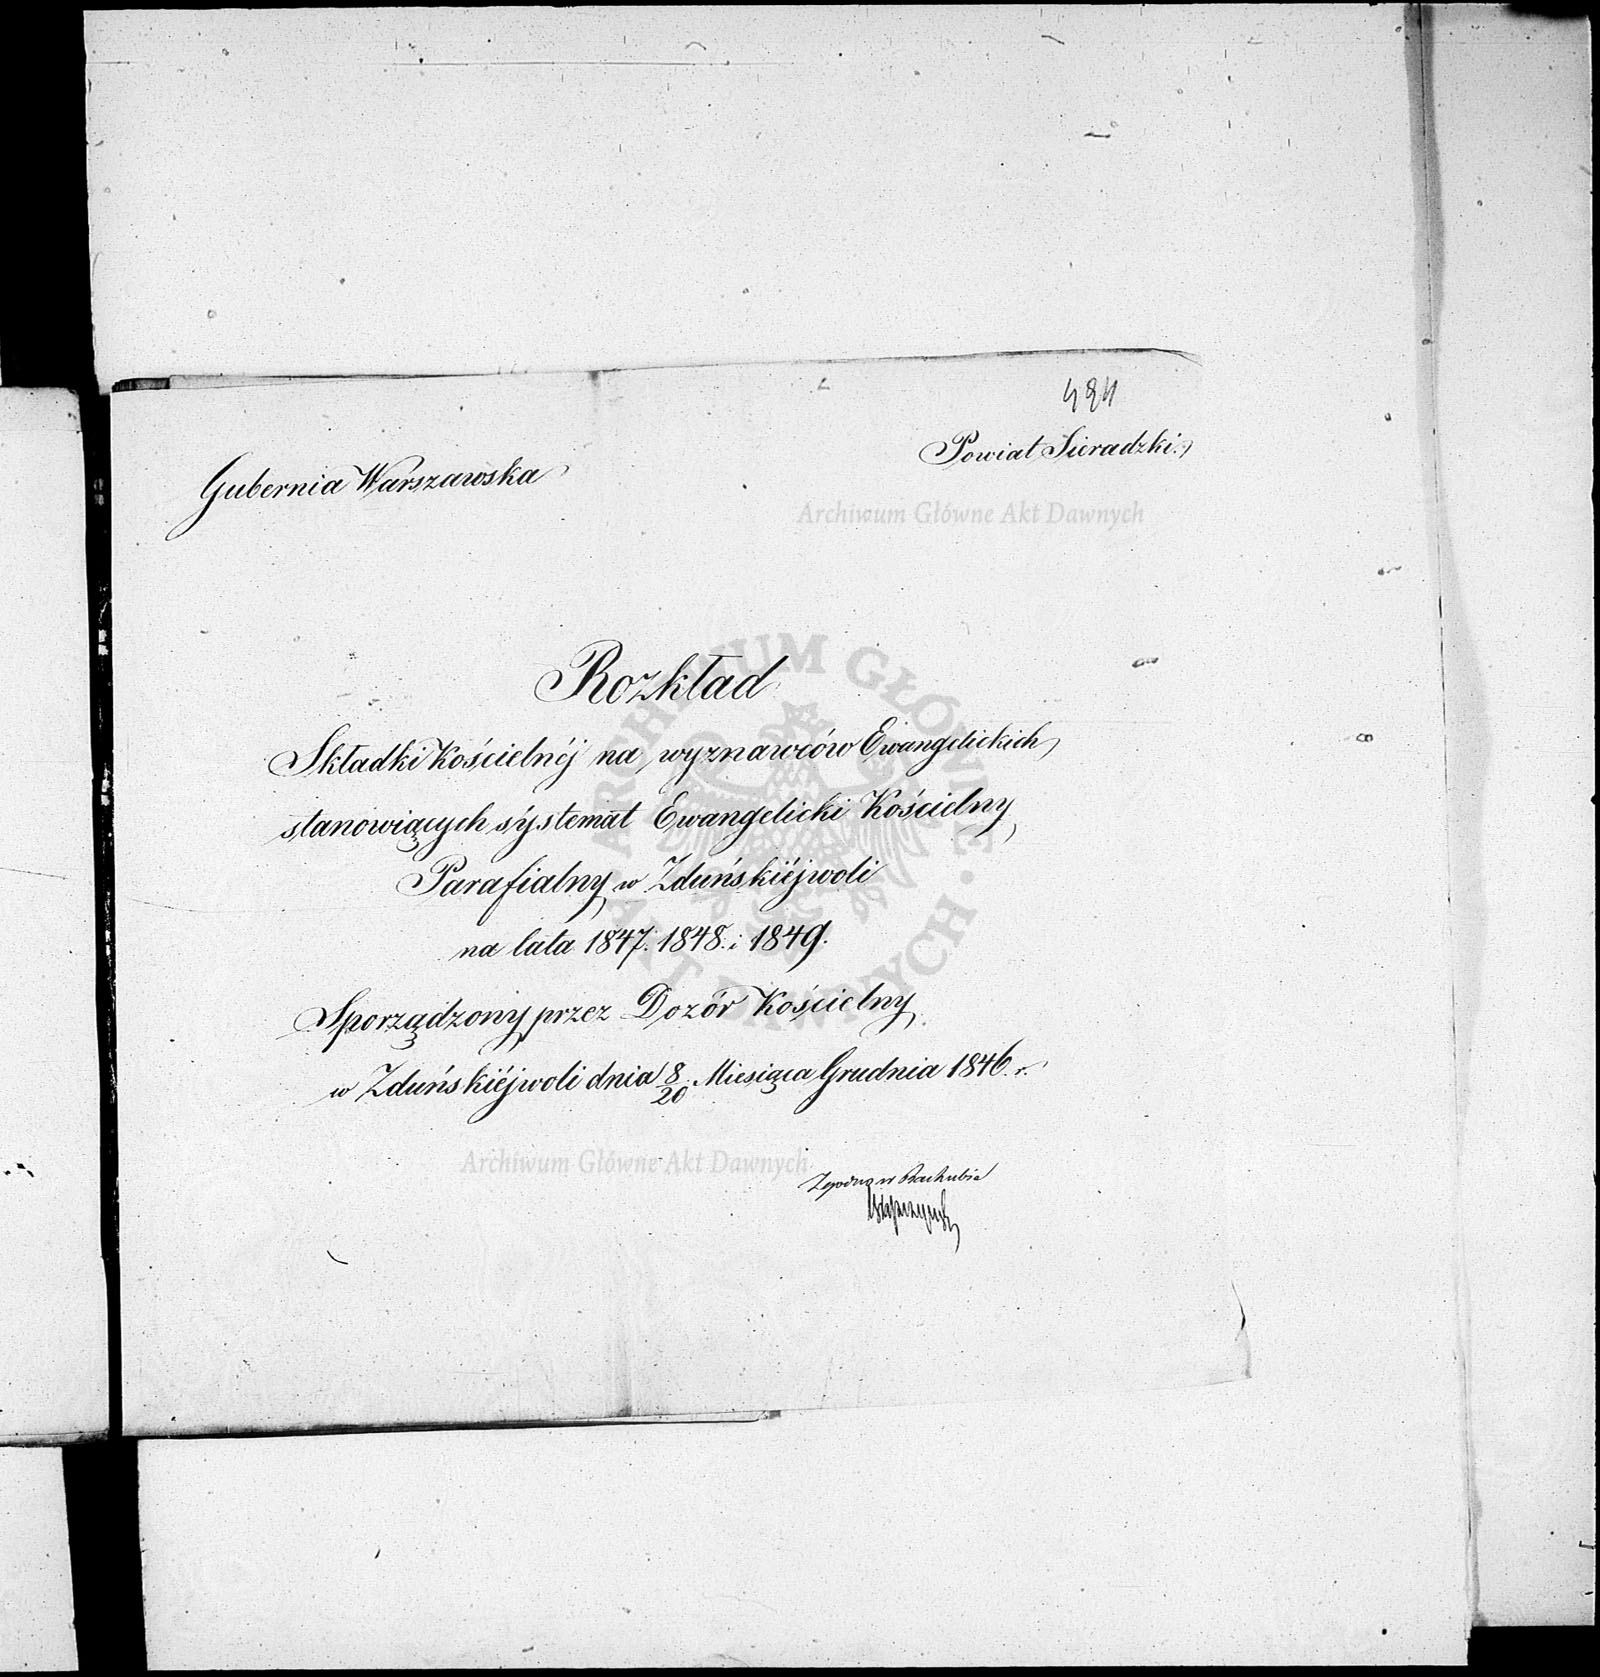 484
Gubernia Warszawska
Powiat Sieradzki.
Archiwum Główne Akt Dawnych
Rozkład
Składki Kościelnéj na wyznawców Ewangelickich
stanowiących systemat Ewangelicki Kościelny
Parafialny w Zduńskiéjwoli
na lata 1847. 1848. i 1849.
Sporządzony przez Dozór Kościelny
w Zduńskiéjwoli dnia 8/20 Miesiąca Grudnia 1846. r.
Archiwum Główne Akt Dawnych
Zgodno w Rachubie
ARCHIWUM GŁÓWNE · AKT DAWNYCH ·